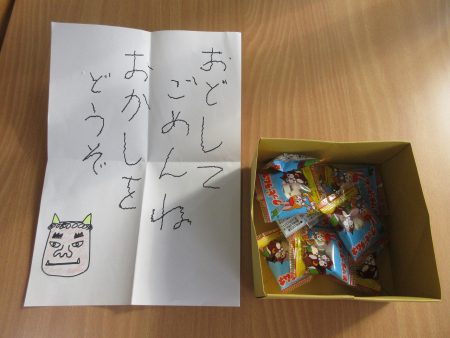 おどして
ごめんね
おかしを
どうぞ